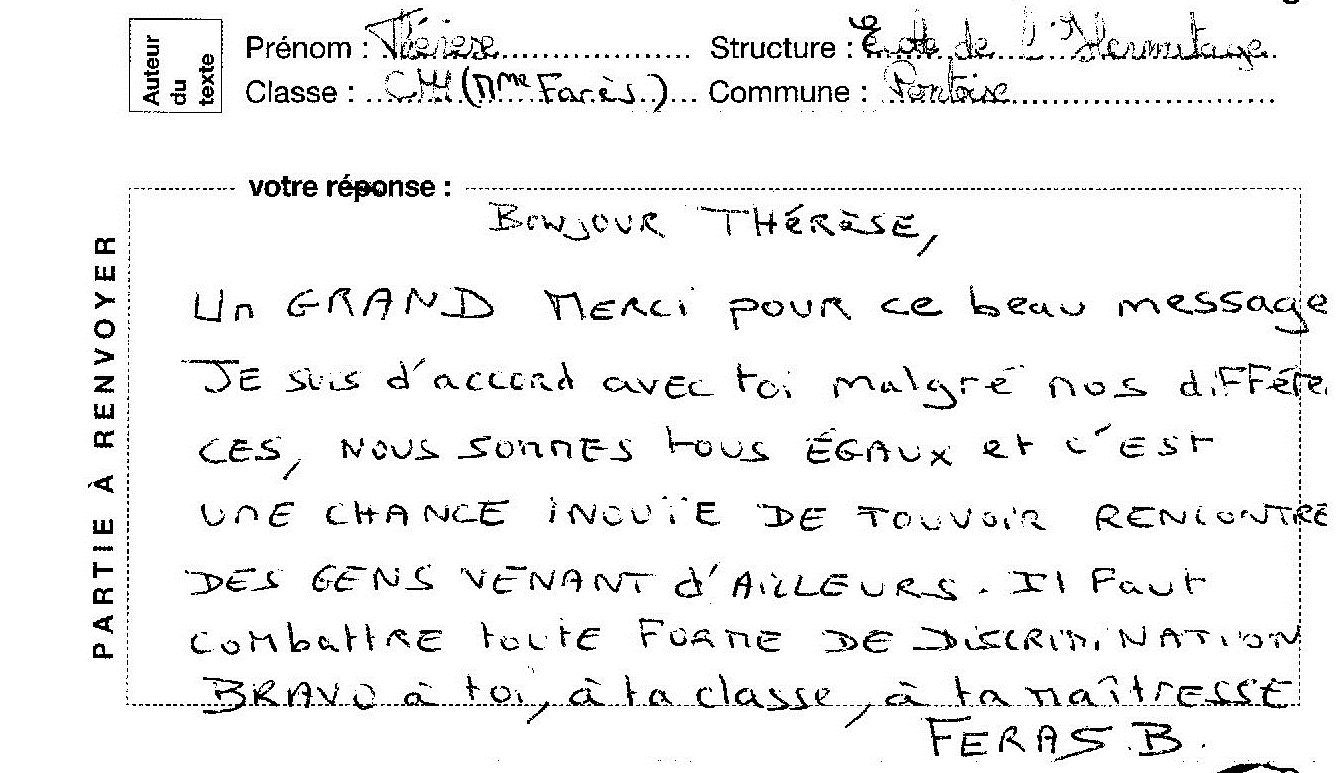 Auteur du texte
Prénom : Thérèse Structure : École de l'Hermitage
Classe : CM1 (Mme Farès) Commune : Pontoise
votre réponse :
PARTIE À RENVOYER
BONJOUR THÉRÈSE,
Un GRAND MERCI pour ce beau message
JE suis d'accord avec toi malgré nos diFFére
CES, NOUS SOMMES tous ÉGAUX et c'EST
UNE CHANCE INOUÏE DE POUVOIR RENCONTRE
DES GENS VENANT d'AILLEURS. Il Faut
combattRE toutE FORME DE DISCRIMINATION
BRAVO à toi, à ta classe, à ta maîtRESSE
FERAS B.